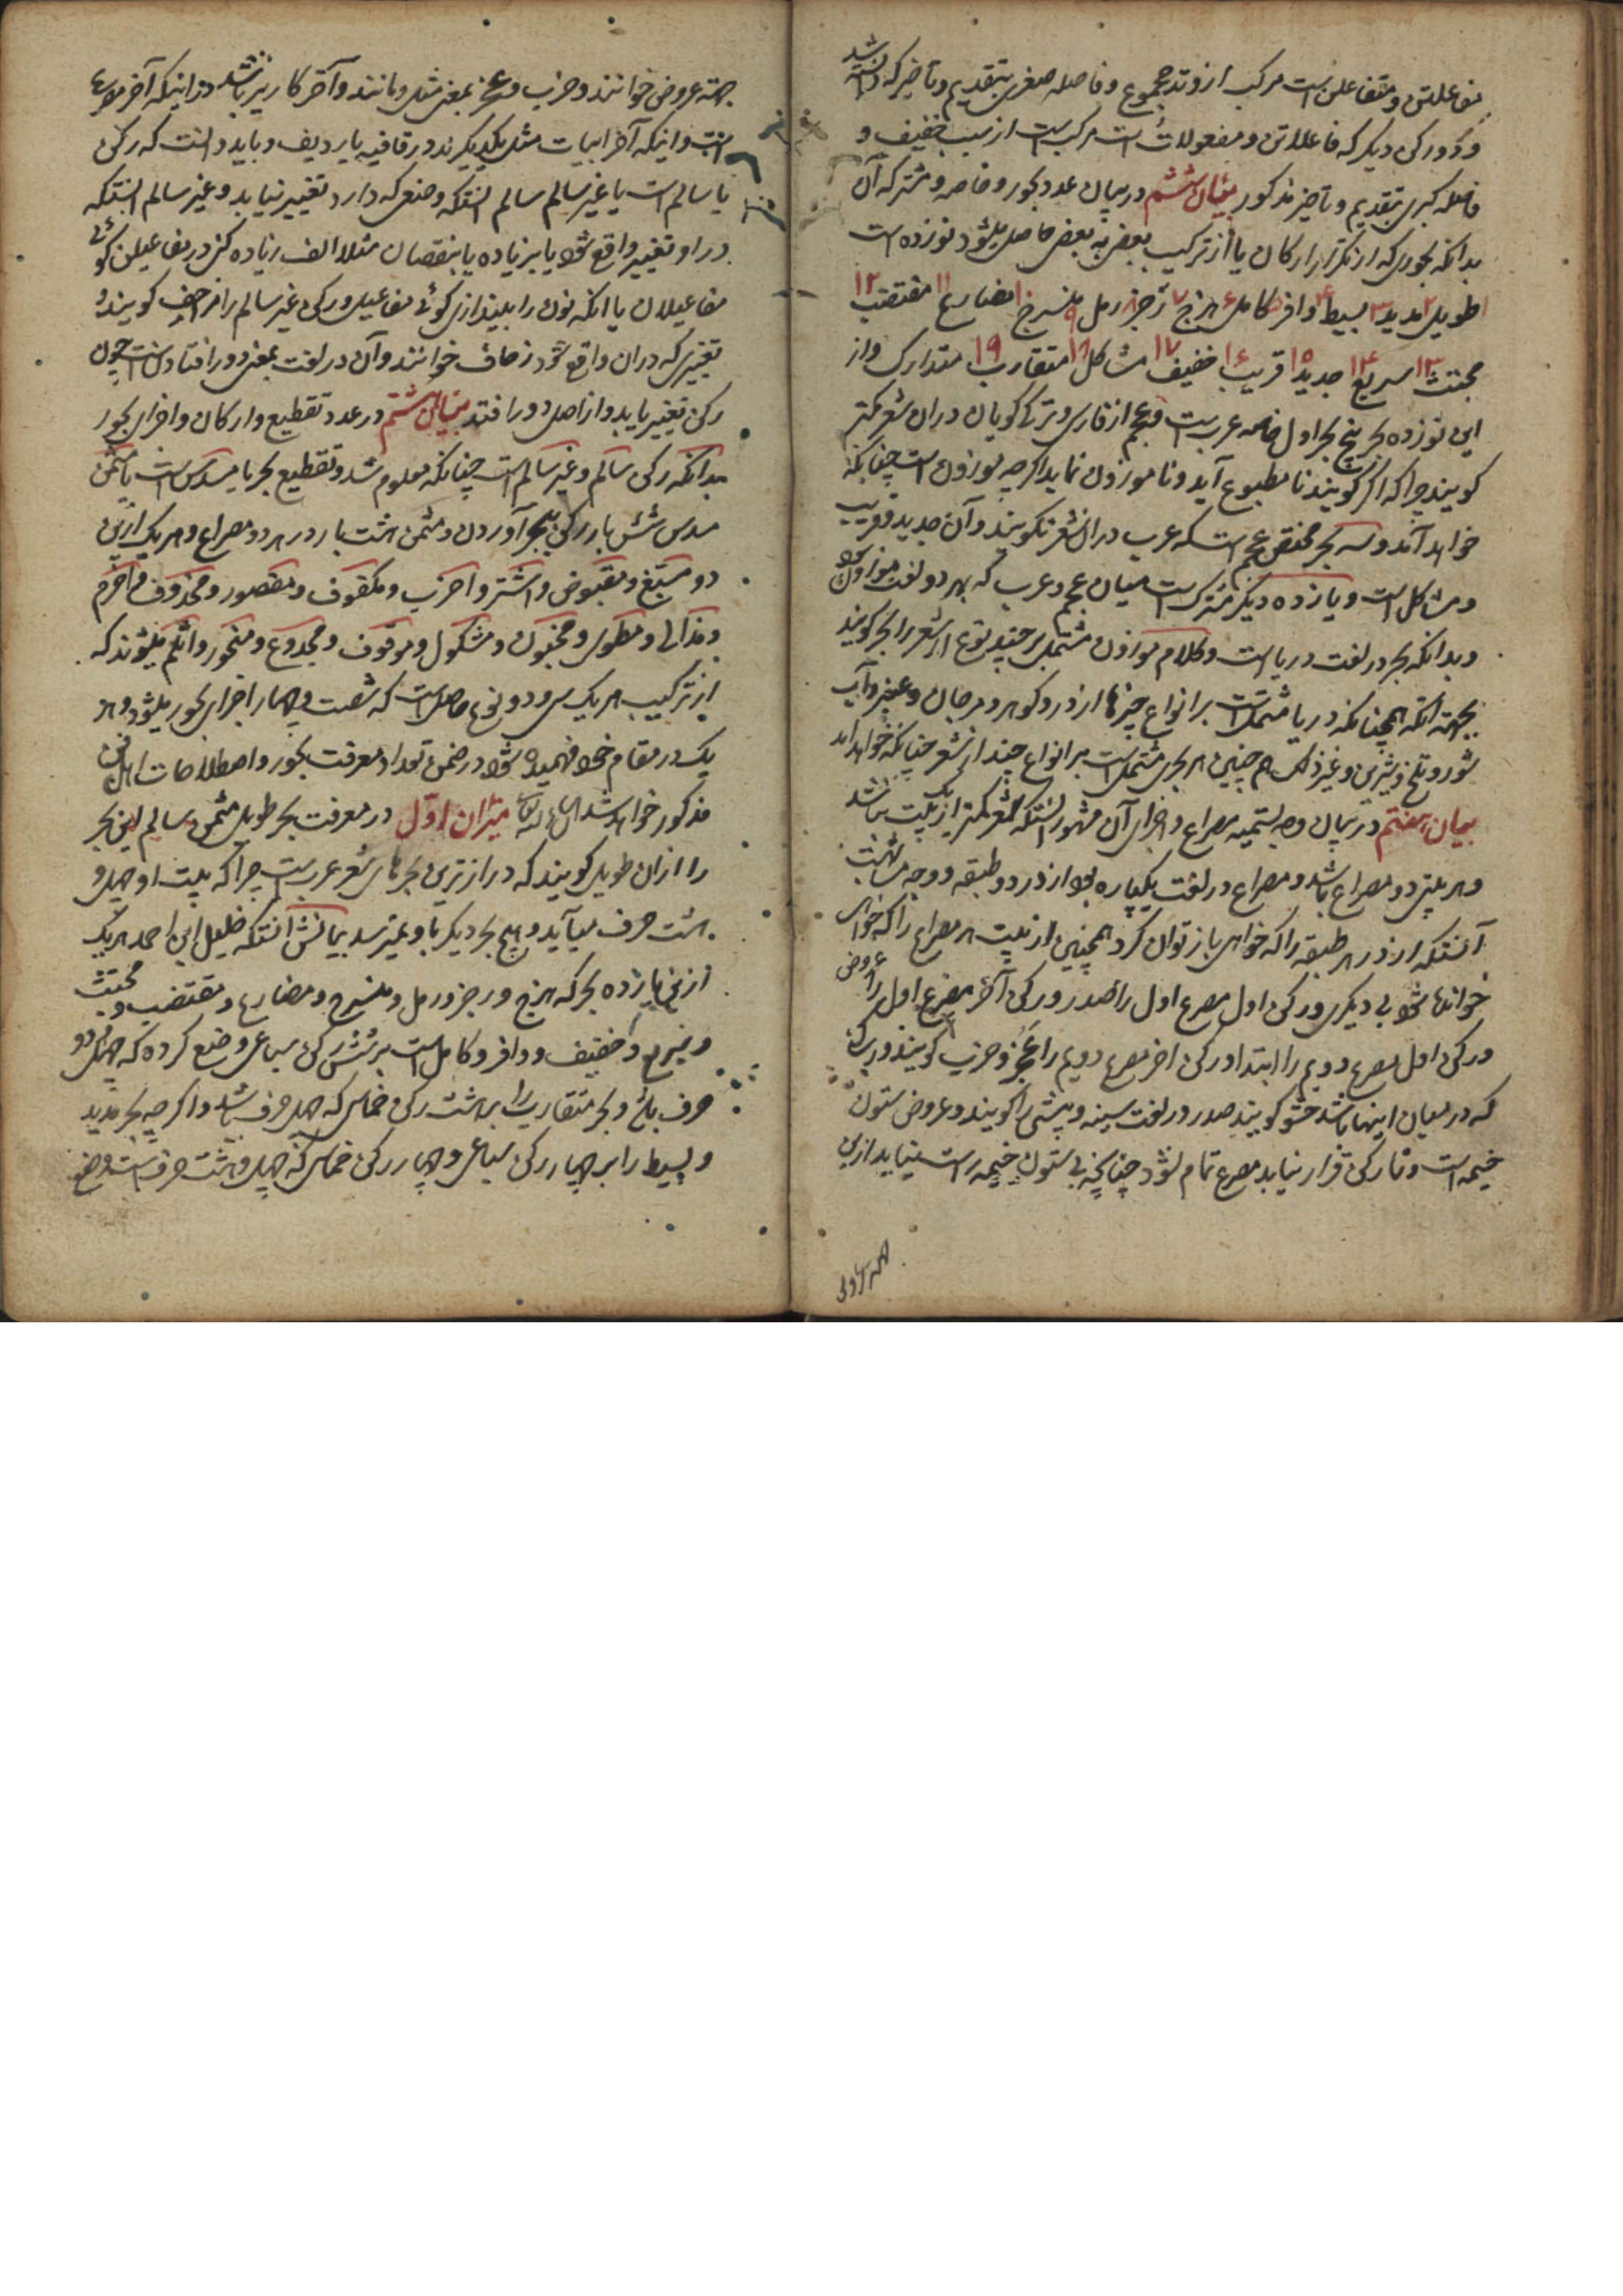 مفاعلتن و متفاعلن است مرکب از وتد مجموع و فاصله صغری بتقدیم و تاخیر که دانسته شد
و دو رکن دیگر که فاعلاتن و مفعولات است مرکب است از سبب خفیف و
فاصله کبری بتقدیم و تاخیر مذکور بیان ششم در بیان عدد بحور و خاصه و مشترکه آن
بدانکه بحوری که از تکرار ارکان یا از ترکیب بعضی به بعضی حاصل میشود نوزده است
۱ طویل ۲ مدید ۳ بسیط ۴ وافر ۵ کامل ۶ هزج ۷ رجز ۸ رمل ۹ منسرح ۱۰ مضارع ۱۱ مقتضب ۱۲
مجتث ۱۳ سریع ۱۴ جدید ۱۵ قریب ۱۶ خفیف ۱۷ مشاکل ۱۸ متقارب ۱۹ متدارک و از
این نوزده بحر پنج بحر اول خاصه عرب است و عجم از فارسی و ترکی گویان دران شعر کمتر
کویند چرا که اگر کویند نا مطبوع آید و ناموزون نماید اگرچه موزون است چنانکه
خواهد آمد و سه بحر مختص عجم است که عرب دران شعر نکویند و آن جدید و قریب
و مشاکل است و یازده دیگر مشترک است میان عجم و عرب که بهر دو لغت موزون
و بدانکه بحر در لغت دریا است و کلام موزون مشتمل بر چند نوع از شعر را بحر کویند
بجهة آنکه همچنانکه دریا مشتمل است بر انواع چیزها از در و کوهر و مرجان و عنبر و آب
شور و تلخ و شیرین و غیر ذلک هم چنین هر بحری مشتمل است بر انواع چند از شعر چنانکه خواهد آمد
بیان هفتم در بیان وجه تسمیه مصراع و اجزای آن مشهور آنستکه شعر کمتر از یک بیت نباشد
و هر بیتی دو مصراع باشد و مصراع در لغت یکپاره بود از در دو طبقه و وجه مناسبت
آنستکه از در هر طبقه را که خواهی باز توان کرد همچنین از بیت هر مصراع را که خواهی
خوانده شود بی دیگری و رکن اول مصرع اول را صدر و رکن آخر مصرع اول را عروض
و رکن اول مصرع دویم را ابتدا و رکن اخر مصرع دویم را عجز و ضرب کویند و رکنی
که در میان اینها باشد حشو کویند صدر در لغت سینه و پیشی را کویند و عروض ستون
خیمه است و تا رکن قرار نیابد مصرع تمام نشود چنانچه بی ستون خیمه راست نیاید ازین
جهة عروض خوانند و ضرب و عجز بمعنی مثل و مانند و آخر کار نیز باشد و از اینکه آخر مصرع
است و اینکه آخر ابیات مثل یکدیگرند در قافیه یا ردیف و باید دانست که رکن
یا سالم است یا غیر سالم سالم آنستکه وضعی که دارد تغییر نیابد و غیر سالم آنستکه
در او تغییر واقع شود یا بزیاده یا بنقصان مثلا الف زیاده کنی در مفاعیلن گوئی
مفاعیلان یا آنکه نون را بیندازی کوئی مفاعیل و رکن غیر سالم را مزاحف کویند و
تغییری که دران واقع شود زحاف خوانند و آن در لغت بمعنی دور افتادنست چون
رکن تغییر یابد و از اصل دور افتد بیان هشتم در عدد تقطیع و ارکان و اجزای بحور
بدانکه رکن سالم و غیر سالم است چنانکه معلوم شد و تقطیع بحر یا مسدس است یا مثمن
مسدس شش بار رکن بحر آوردن و مثمن هشت بار در هر دو مصراع و هر یک ازین
دو مسبغ و مقبوض و اشتر و اخرب و مکفوف و مقصور و محذوف و اخرم
و مذال و مطوی و مخبون و مشکول و موقوف و مجدوع و منحور و اثلم میشوند که
از ترکیب هر یک سی و دو نوع حاصل است که شصت و چهار اجزای بحور میشود و هر
یک در مقام خود فهمیده شود در ضمن تعداد معرفت بحور و اصطلاحات اهل فن
مذکور خواهد شد ان شاء الله تعالی میزان اول در معرفت بحر طویل مثمن سالم این بحر
را ازان طویل کویند که درازترین بحرهای شعر عرب است چرا که بیت او چهل و
هشت حرف میآید و هیچ بحر دیگر باو نمیرسد بیانش آنستکه خلیل ابن احمد هر یک
ازین یازده بحر که هزج و رجز و رمل و منسرح و مضارع و مقتضب و مجتث
و سریع و خفیف و وافر و کامل است بر شش رکن سباعی وضع کرده که چهل و دو
حرف باشد و بحر متقارب را بر هشت رکن خماسی که چهل حرف باشد و اگرچه بحر مدید
و بسیط را بر چهار رکن سباعی و چهار رکن خماسی که چهل و هشت حرف است وضع